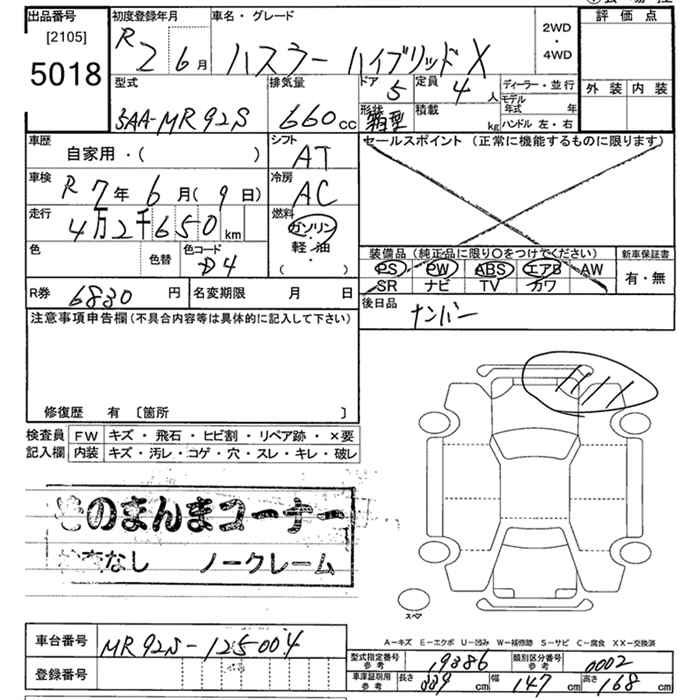 出品番号
[2105]
5018
初度登録年月
R2 6月
車名・グレード
ハスラー ハイブリッドX
2WD
・
4WD
評価点
外装 内装
型式
5AA-MR92S
排気量
660cc
ドア 5
定員 4人
形状 箱型
積載 kg
ディーラー・並行
モデル年式 年
ハンドル 左・右
車歴
自家用・( )
シフト
AT
セールスポイント (正常に機能するものに限ります)
車検
R7年6月(9日)
冷房
AC
走行
4万2千650km
燃料
ガソリン
軽油
( )
色
色替
色コード
D4
装備品 (純正品に限り○をつけてください)
PS PW ABS エアB AW
SR ナビ TV カワ
新車保証書
有・無
R券 6830円
名変期限 月 日
後日品
ナンバー
注意事項申告欄(不具合内容等は具体的に記入して下さい)
修復歴 有 〔箇所 〕
検査員 FW キズ・飛石・ヒビ割・リペア跡・×要
記入欄 内装 キズ・汚レ・コゲ・穴・スレ・キレ・破レ
きのまんまコーナー
検査なし ノークレーム
スペア
A-キズ E-エクボ U-凹み W-補修跡 S-サビ C-腐食 XX-交換済
車台番号
MR92S-125004
登録番号
型式指定番号 参考 19386
類別区分番号 参考 0002
車庫証明用 参考 長さ 339cm 幅 147cm 高さ 168cm